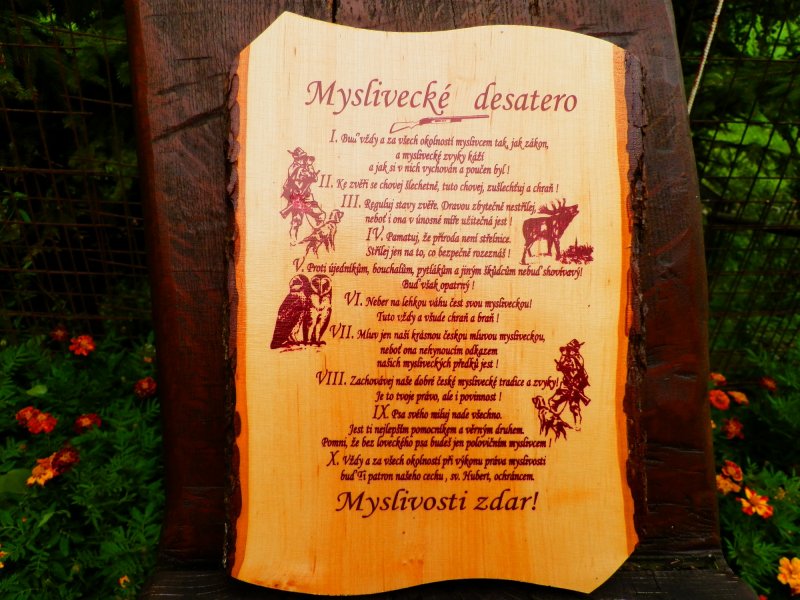 Myslivecké desatero
I. Buď vždy a za všech okolností myslivcem tak, jak zákon,
a myslivecké zvyky káží
a jak si v nich vychován a poučen byl !
II. Ke zvěři se chovej šlechetně, tuto chovej, zušlechťuj a chraň !
III. Reguluj stavy zvěře. Dravou zbytečně nestřílej,
neboť i ona v únosné míře užitečná jest !
IV. Pamatuj, že příroda není střelnice.
Střílej jen na to, co bezpečně rozeznáš !
V. Proti újedníkům, bouchalům, pytlákům a jiným škůdcům nebuď shovívavý!
Buď však opatrný !
VI. Neber na lehkou váhu čest svou mysliveckou!
Tuto vždy a všude chraň a braň !
VII. Mluv jen naší krásnou českou mluvou mysliveckou,
neboť ona nehynoucím odkazem
našich mysliveckých předků jest !
VIII. Zachovávej naše dobré české myslivecké tradice a zvyky!
Je to tvoje právo, ale i povinnost !
IX. Psa svého miluj nade všechno.
Jest ti nejlepším pomocníkem a věrným druhem.
Pomni, že bez loveckého psa budeš jen polovičním myslivcem !
X. Vždy a za všech okolností při výkonu práva myslivosti
buď Ti patron našeho cechu , sv. Hubert, ochráncem.
Myslivosti zdar!